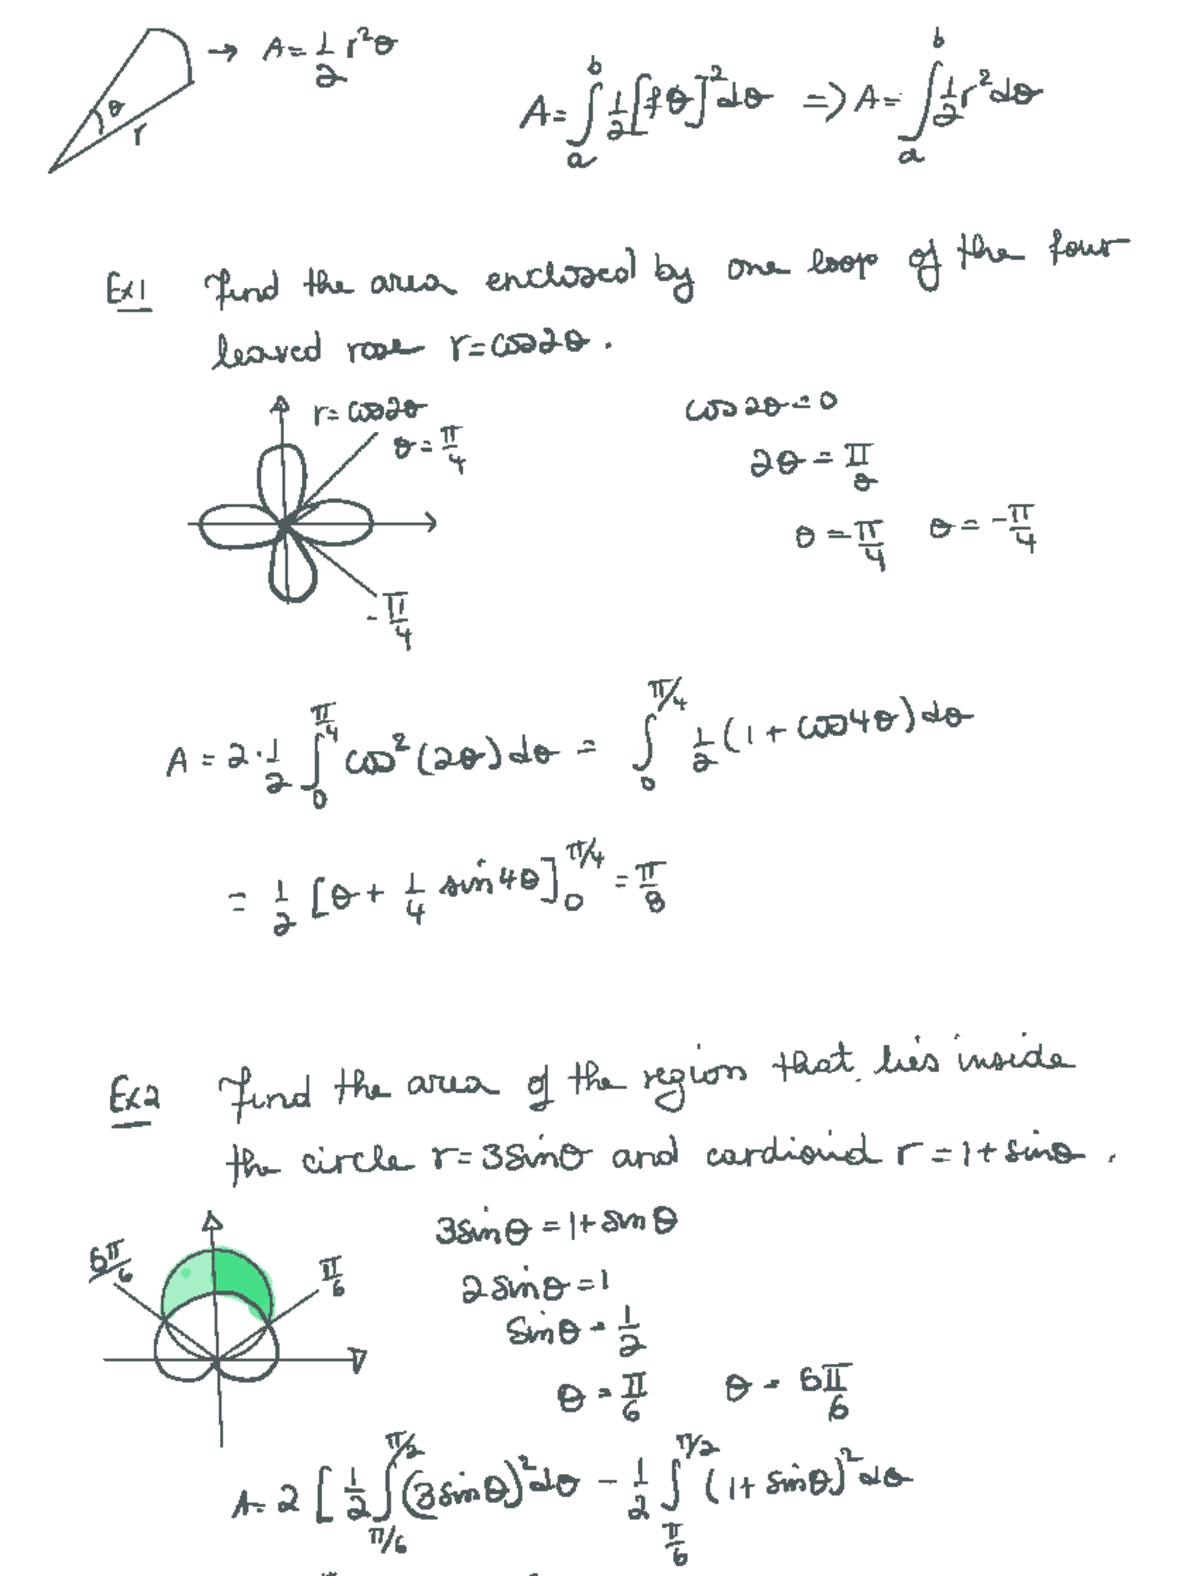 θ r → A = 1/2 r²θ
A = ∫_a^b 1/2 [fθ]² dθ ⇒ A = ∫_a^b 1/2 r² dθ
Ex1 Find the area enclosed by one loop of the four
leaved rose r = cos2θ.
r = cos2θ
θ = π/4
-π/4
cos2θ = 0
2θ = π/2
θ = π/4 θ = -π/4
A = 2·1/2 ∫_0^{π/4} cos²(2θ) dθ = ∫_0^{π/4} 1/2 (1 + cos4θ) dθ
= 1/2 [θ + 1/4 sin4θ]_0^{π/4} = π/8
Ex2 Find the area of the region that lies inside
the circle r = 3sinθ and cardioid r = 1 + sinθ.
5π/6 π/6
3sinθ = 1 + sinθ
2sinθ = 1
sinθ = 1/2
θ = π/6 θ = 5π/6
A = 2 [1/2 ∫_{π/6}^{π/2} (3sinθ)² dθ - 1/2 ∫_{π/6}^{π/2} (1 + sinθ)² dθ